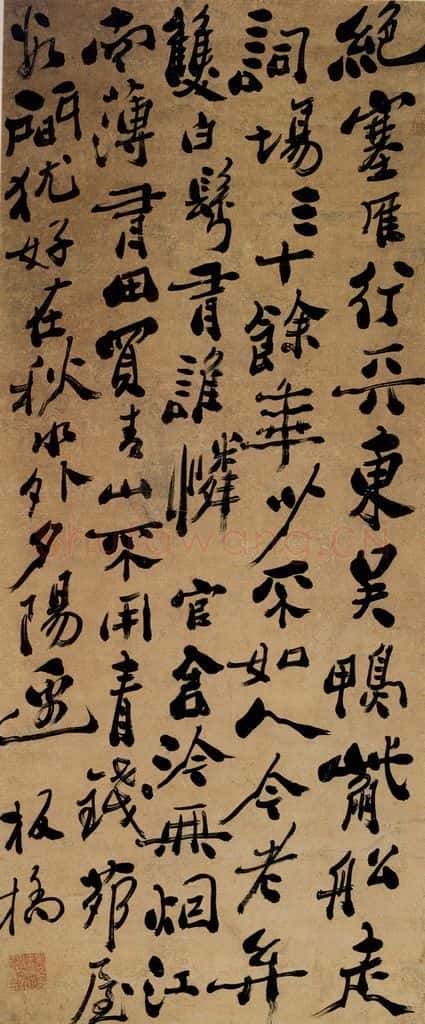 絕塞雁行天東吳鴨觜船走
詞場三十餘年少不如人今老矣
雙白鬢有誰憐 官舍冷無烟江
南薄有田買青山不用青錢茆屋
數間猶好在秋水外夕陽邊 板橋